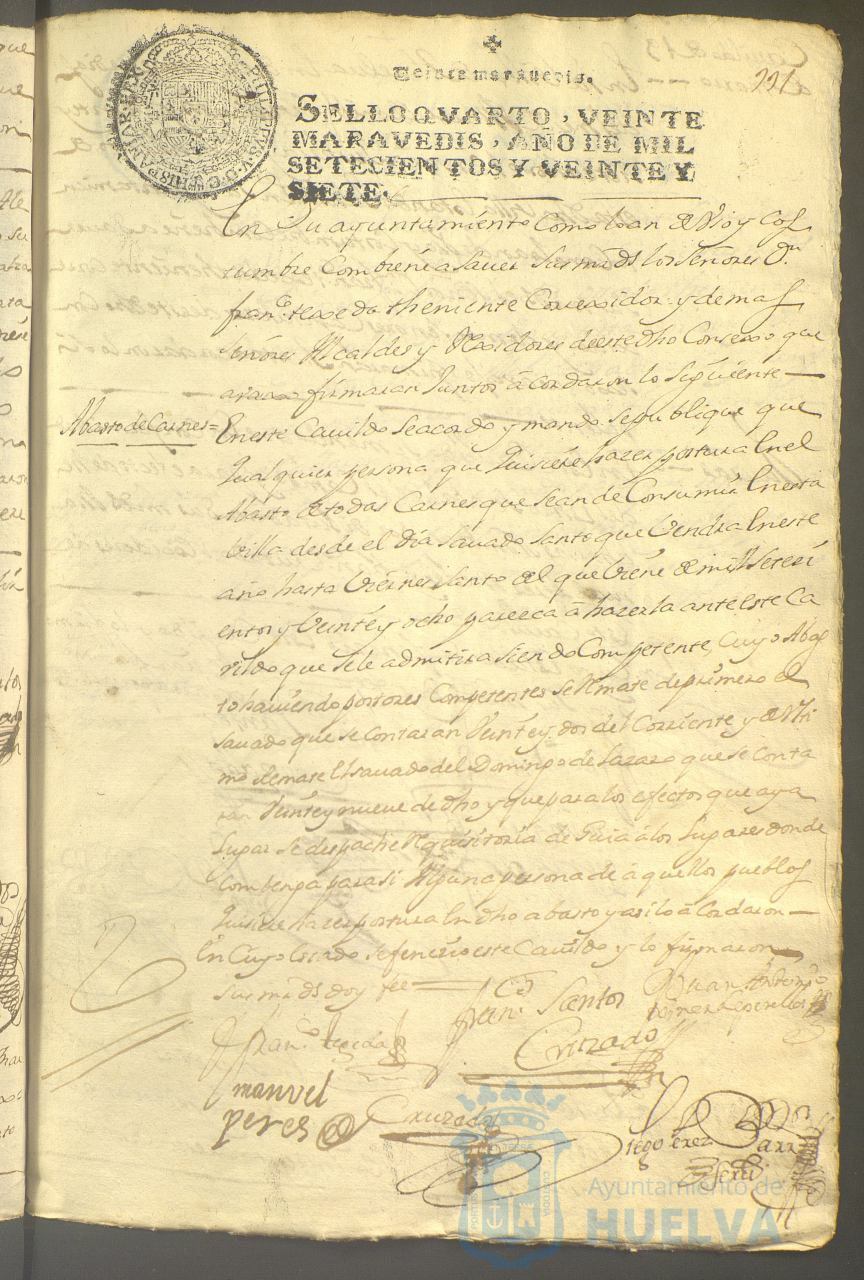 Veinte maravedis.
SELLO QVARTO, VEINTE
MARAVEDIS, AÑO DE MIL
SETECIENTOS Y VEINTE Y
SIETE.
En Su ayuntamiento como loan de Vso y cos
tumbre Combiene a Sauer Sus mrds los Señores Dn
franco texeda theniente Correxidor y demas
Señores Alcaldes y Rexidores deeste dho Consexo que
firmaran Juntos acordaron lo Siguiente
Abasto de Carnes = En este Cauildo Se acordo y mando Se publique que
qualquier persona que quisiere hazer postura En el
Abasto de todas Carnes que Sean de Consumir En esta
Villa desde el dia Sauado Santo que Vendra En este
año hasta Viernes Santo del que Viene de mill Seteci
entos y Veinte y ocho parezca a hazerla ante Este Ca
uildo que Se le admitira Siendo Competente, Cuyo Abas
to hauiendo postores Competentes Se Remate de primero el
Sauado que Se Contaran Veinte y dos del Corriente y de Vlti
mo Remate El Sauado del Domingo de Lazaro que Se Conta
ran Veinte y nueue de dho y que para los efectos que aya
Lugar Se despache Requisitoria de Guia a los Lugares donde
Combenga para Si Alguna persona de aquellos pueblos
quisiere hazer postura En dho abasto y asi lo acordaron
En Cuyo Estado Se fenecio este Cauildo y lo firmaron
Sus mrds doy fee
Franco Santos
Cruzado
Juan Antonio
Franco texeda
manvel
peres
Cruzado
Diego Perez